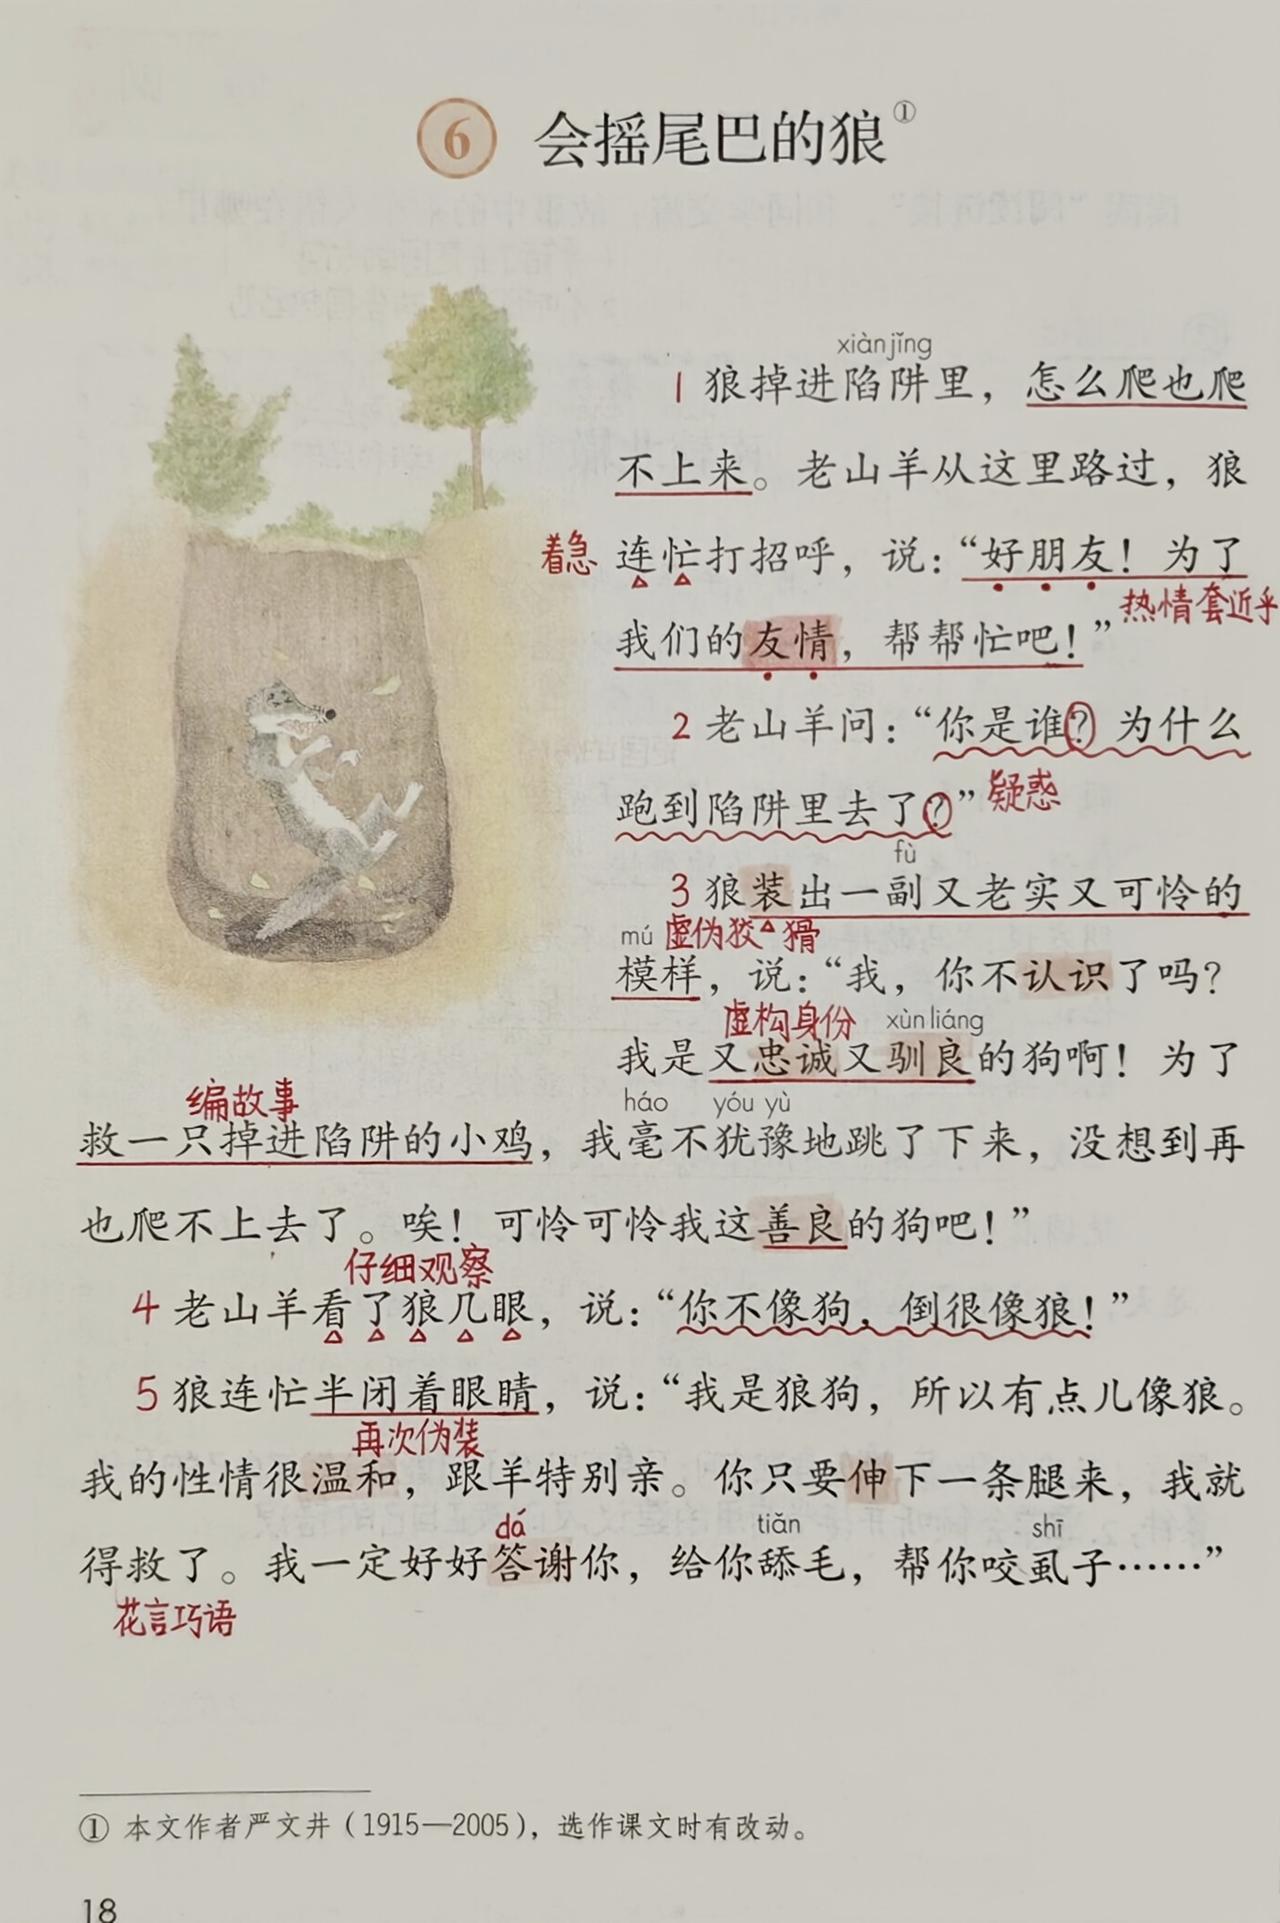 6 会摇尾巴的狼①
xiàn jǐng
1 狼掉进陷阱里，怎么爬也爬
不上来。老山羊从这里路过，狼
着急 连忙打招呼，说：“好朋友！为了
热情套近乎
我们的友情，帮帮忙吧！”
2 老山羊问：“你是谁？为什么
跑到陷阱里去了？” 疑惑
fù
3 狼装出一副又老实又可怜的
mú 虚伪狡猾
模样，说：“我，你不认识了吗？
虚构身份 xùn liáng
我是又忠诚又驯良的狗啊！为了
编故事 háo yóu yù
救一只掉进陷阱的小鸡，我毫不犹豫地跳了下来，没想到再
也爬不上去了。唉！可怜可怜我这善良的狗吧！”
仔细观察
4 老山羊看了狼几眼，说：“你不像狗，倒很像狼！”
5 狼连忙半闭着眼睛，说：“我是狼狗，所以有点儿像狼。
再次伪装
我的性情很温和，跟羊特别亲。你只要伸下一条腿来，我就
dá tiǎn shī
得救了。我一定好好答谢你，给你舔毛，帮你咬虱子……”
花言巧语
① 本文作者严文井（1915—2005），选作课文时有改动。
18